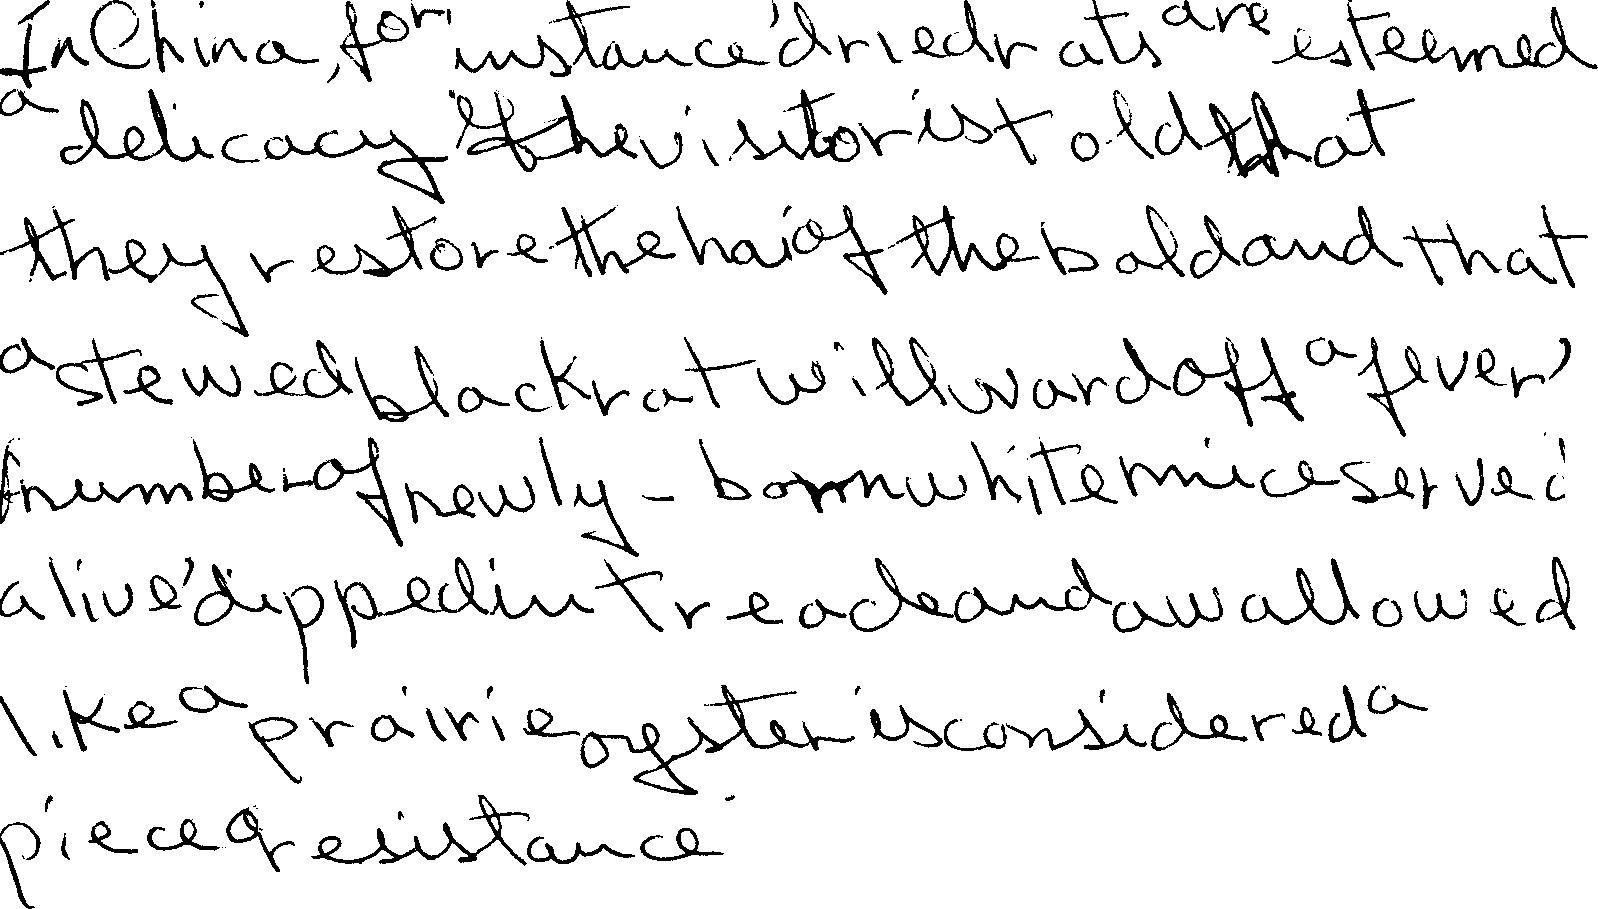 In China, for instance, dried rats are esteemed
a delicacy, if the visitor is told that
they restore the hai of the bald and that
a stewed black rat will ward off a fever,
number of newly-born white mice served
alive, dipped in treacle and awallowed
like a prairie oyster is considered a
piece resistance.